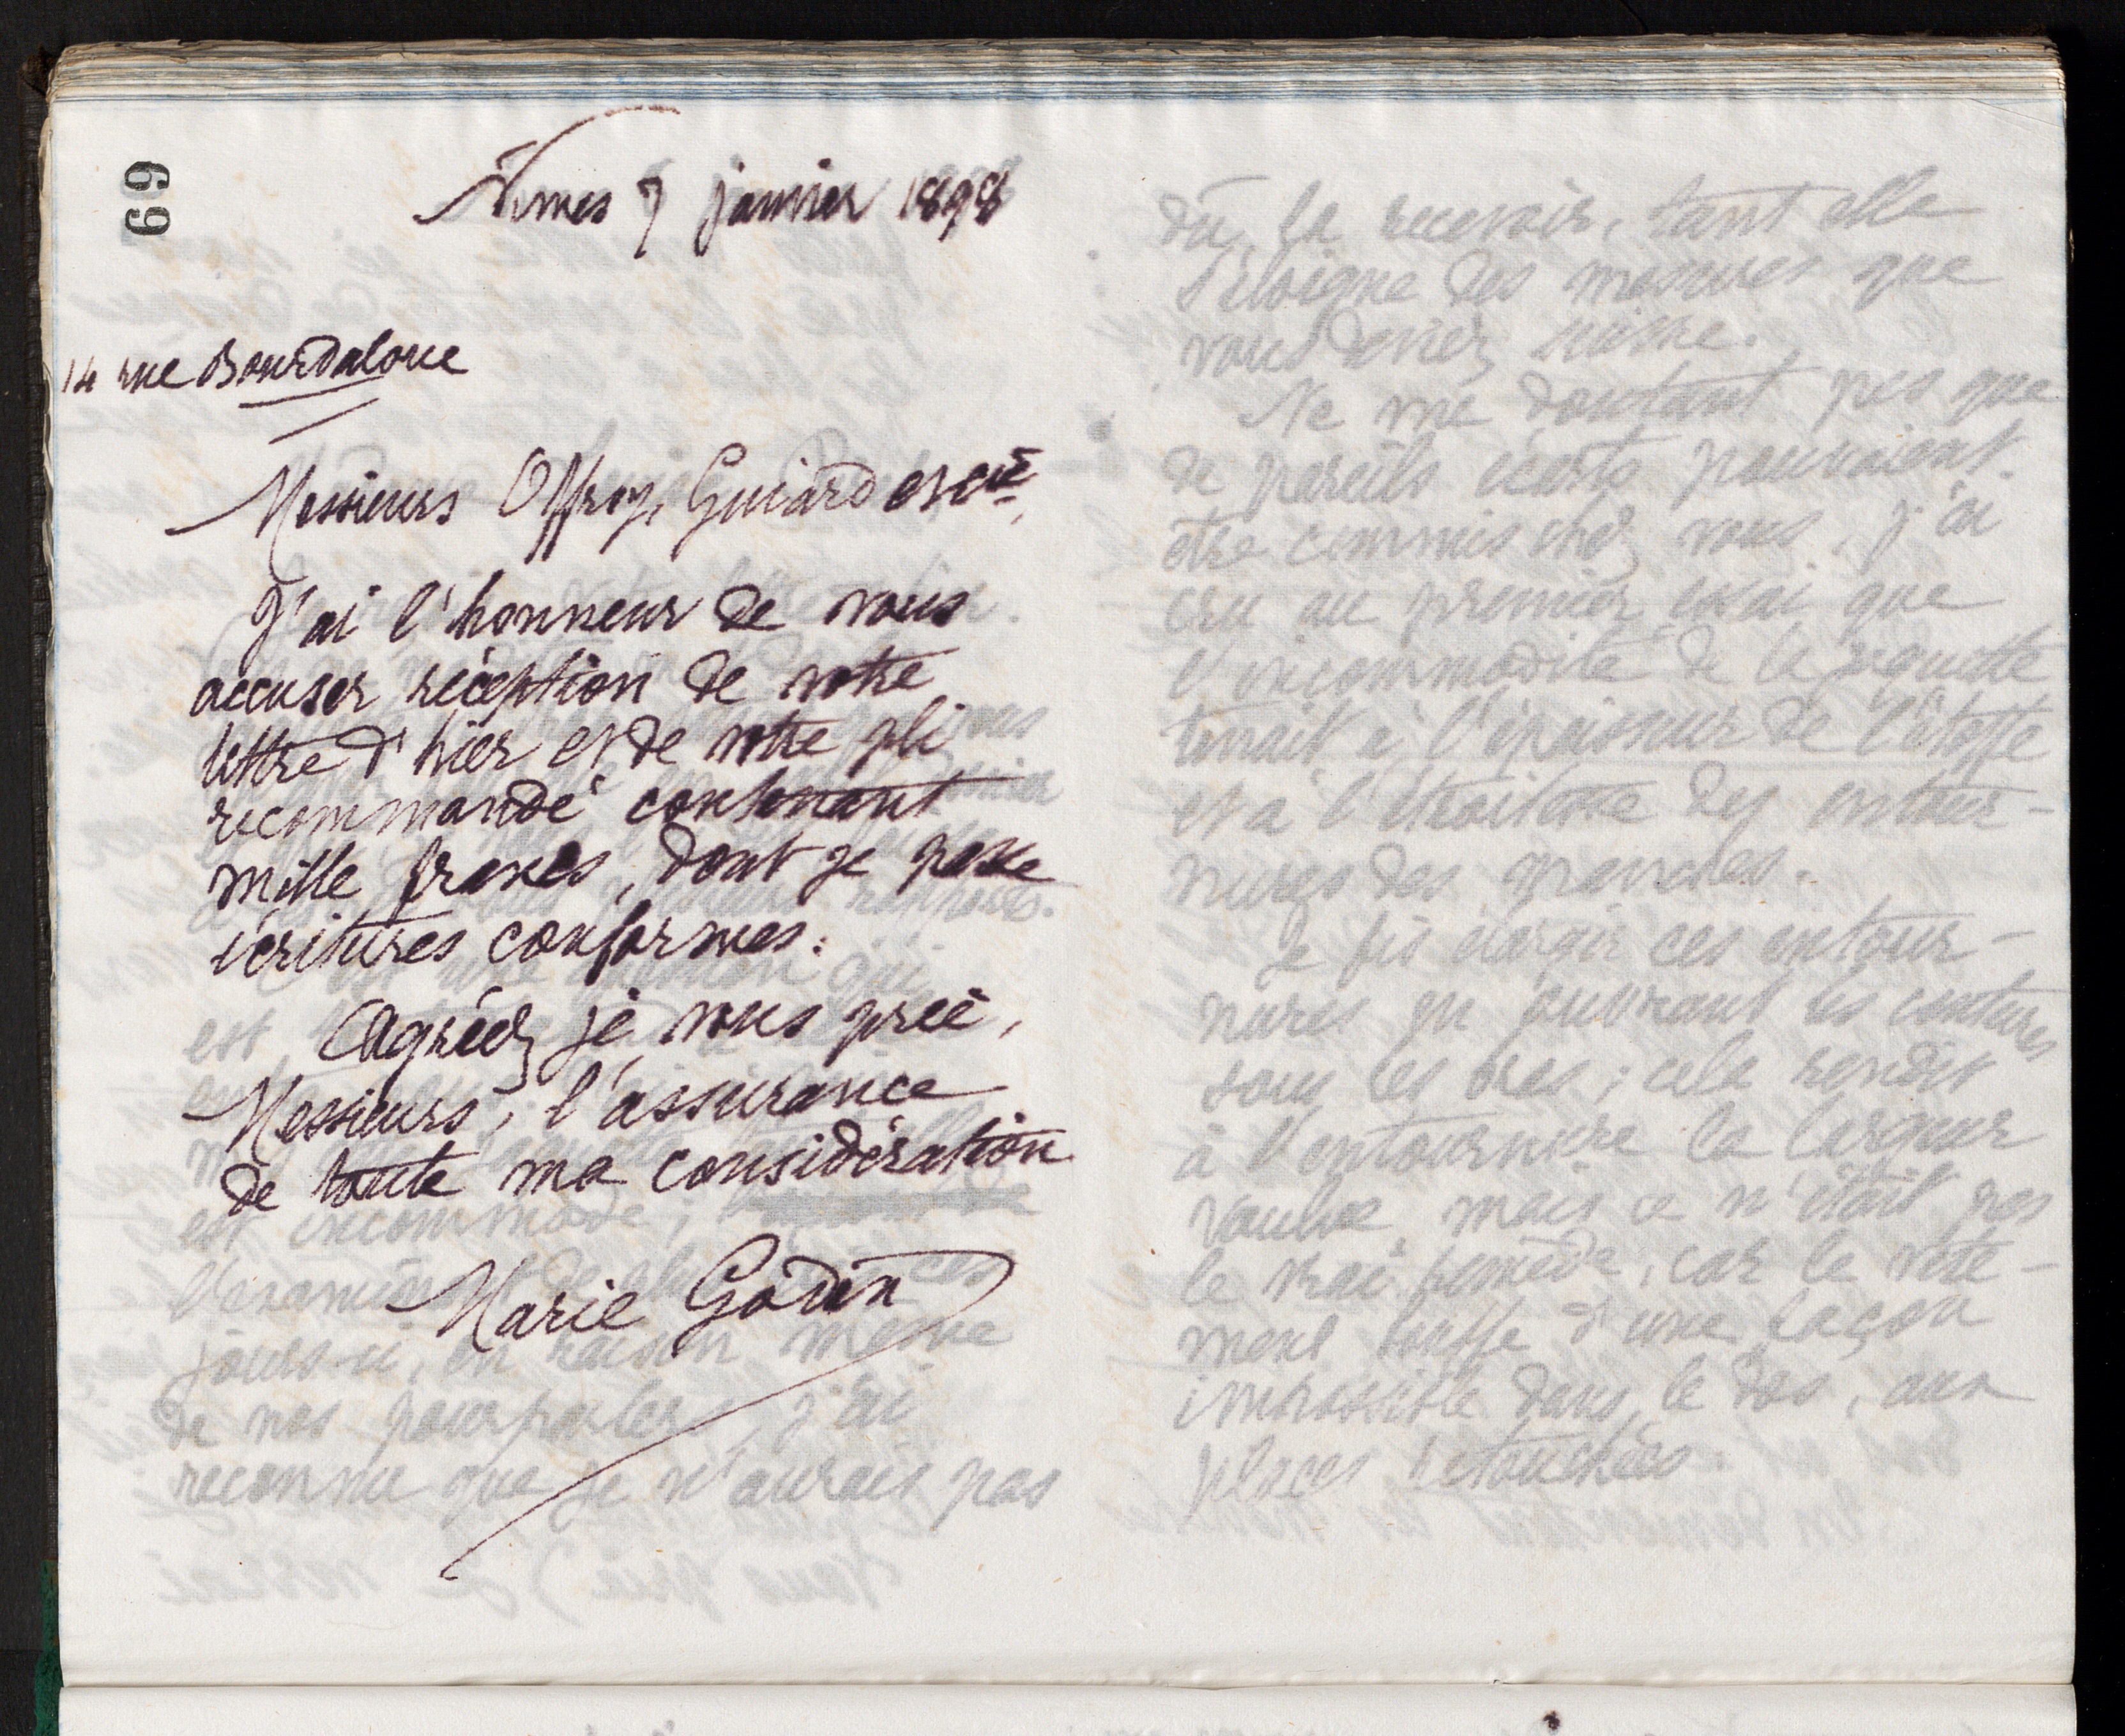 69
Nimes 7 janvier 1898
14 rue Bourdaloue
Messieurs Offroy, Guiard et Cie,
J'ai l'honneur de vous
accuser réception de votre
lettre d'hier et de votre pli
recommandé contenant
mille francs, dont je passe
écritures conformes.
Agréez je vous prie,
Messieurs, l'assurance
de toute ma considération
Marie Godin
est incommode;
jours-ci, en raison même
de nos pourparlers, j'ai
reconnu que je n'aurais pas
dû la recevoir, tant elle
s'éloigne des mesures que
vous deviez suivre.
Ne me doutant pas que
de pareils écarts pouvaient
être commis chez vous, j'ai
cru au premier essai que
l'incommodité de la jaquette
tenait à l'épaisseur de l'étoffe
et à l'étroitesse des entour-
nures des manches.
Je fis élargir ces entour-
nures en ouvrant les coutures
sous les bras; cela rendit
à l'entournure la largeur
voulue, mais ce n'était pas
le vrai remède, car le vête-
ment bouffe d'une façon
impossible dans le dos, aux
places retouchées.